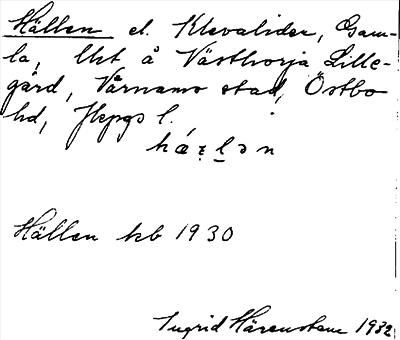 Hällen el. Klevalider, Gam-
la, lht å Västhorja Lille-
gård, Värnamo stad, Östbo
hd, Jkpgs l.
Hällen kb 1930
Ingrid Härenstam 1932